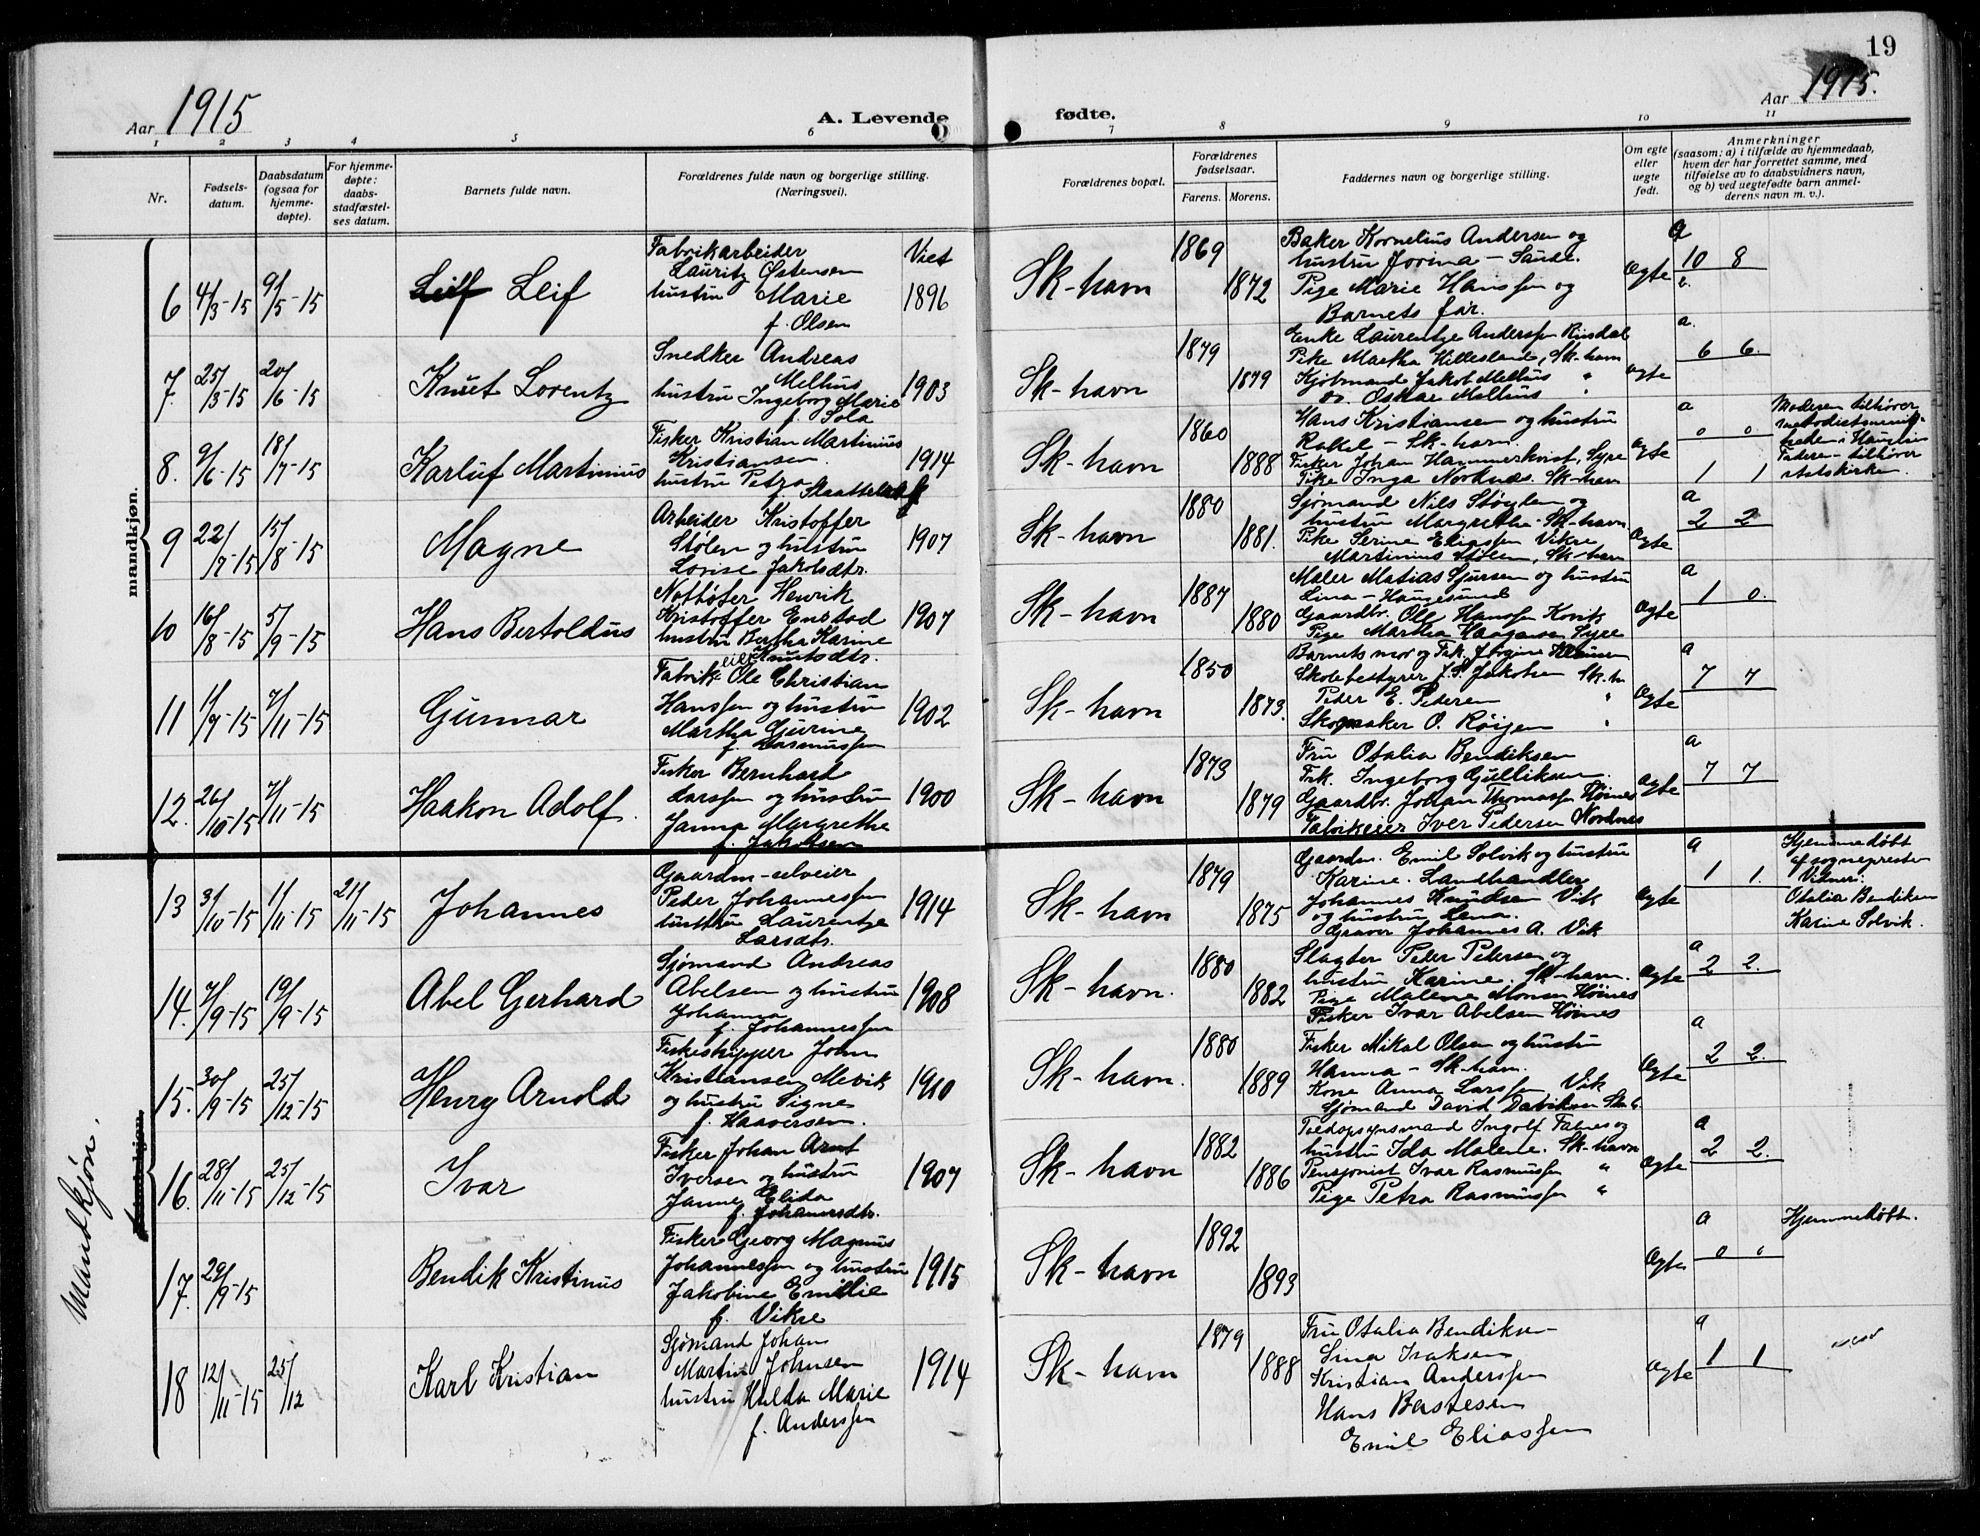 19
Aar 1915
A. Levende
fødte.
Aar 1915.
1 2 3 4 5 6 7 8 9 10 11
Nr.
Fødsels-
datum.
Daabsdatum
(ogsaa for
hjemme-
døpte).
For hjemme-
døpte:
daabs-
stadfæstel-
ses datum.
Barnets fulde navn.
Forældrenes fulde navn og borgerlige stilling.
(Næringsvei).
Forældrenes bopæl.
Forældrenes
fødselsaar.
Farens. Morens.
Faddernes navn og borgerlige stilling.
Om egte
eller
uegte
født.
Anmerkninger
(saasom: a) i tilfælde av hjemmedaab,
hvem der har forrettet samme, med
tilføielse av to daabsvidners navn,
og b) ved uegtefødte barn anmel-
derens navn m. v.).
mandkjøn.
6 4/3-15 9/5-15
Leif Leif
Fabrikarbeider
Lauritz Østensen
hustru Marie
f. Olsen
Viet
1896
Sk-havn
1869
1872
Baker Kornelius Andersen og
hustru Jorina - Sande.
Pige Marie Hanssen og
Barnets far.
Ægte
a
10 8
7. 25/3-15 20/6-15
Knut Lorentz
Snedker Andreas
Melhus
hustru Ingeborg Marie
f. Sola
1903
Sk-havn
1879
1879
Enke Laurentze Anderssen Rinsdal
Pike Martha Hillesland, Sk-havn
Kjøbmand Jakob Melhus "
do. Oskar Melhus "
ægte
a.
6 6.
8. 9/6-15 18/7-15
Karluf Martinius
Fisker Kristian Martinius
Kristiansen.
hustru Petra
1914
Sk-havn
1860
1888
Hans Kristiansen og hustru
Rakel - Sk-havn.
Fisker Johan Hammerkvist, Syre
Pike Inga Nordnæs. Sk-havn
ægte
a
0 0
1 1
Moderen tilhører
metodistmenig-
heden i Haugesun
Faderen tilhører
statskirken.
9 22/7-15 15/8-15
Magne
Arbeider Kristoffer
Stølen og hustru
Lovise Jakobsdtr.
1907
Sk-havn
1880
1881.
Sjømand Nils Støylen og
hustru Margrethe - Sk-havn
Pike Serine Eliassen Vikre
Martinius Stølen, Sk-havn
Ægte
a
2 2
10 16/8-15 5/9-15
Hans Bertoldus
Notbøter Henrik
Kristoffer Enstad
hustru Bertha Karine
Knutsdtr.
1907
Sk-havn
1887
1880
Maler Matias Sjursen og hustru
Lina - Haugesund
Gaardbr. Ole Hanssen Kovik
Pige Martha Haagensen Syre
Ægte
a
1 0.
11 11/9-15 7/11-15
Gunnar
Fabrikeier Ole Christian
Hanssen og hustru
Martha Gurine
f. Rasmussen
1902
Sk-havn
1850
1873.
Barnets mor og Frk. Jørgine Klausen
Skolebestyrer J. S. Jakobsen Sk-h
Peder E. Pedersen "
Skomaker O. Røigen "
Ægte
a
7 7
12. 26/10-15 7/11-15
Haakon Adolf.
Fisker Bernhard
Larssen og hustru
Janna Margrethe
f. Jakobsen
1900
Sk-havn
1873
1879
Fru Otalia Bendiksen
Frk. Ingeborg Gulliksen.
Gaardbr. Johan Thomassen Høines
Fabrikeier Iver Pedersen Nordnes
ægte
a
7 7
13 31/10-15 1/11-15 21/11-15
Johannes
Gaardm-selveier
Peder Johannessen
hustru Laurentze
Larsdtr.
1914
Sk-havn
1879
1875
Gaardm. Emil Solvik og hustru
Karine. Landhandler
Johannes Knudsen Vik
og hustru Lena.
Graver Johannes A. Vik
ægte
a
1 1.
Hjemmedøbt
af sogneprester
Vidner:
Otalia Bendiksen
Karine Solvik.
14. 7/9-15 19/9-15
Abel Gerhard
Sjømand Andreas
Abelsen og hustru
Johanna
f. Johannessen
1908
Sk-havn.
1880
1882
Slagter Peder Petersen og
hustru Karine, Sk-havn.
Pige Malene Monsen Høines
Fisker Ivar Abelsen Høines
Ægte
a
2 2.
15. 30/9-15 25/12-15
Henry Arnold
Fiskeskipper John
Kristiansen Mevik
og hustru Signe
f. Haaversen.
1910
Sk-havn.
1880
1889
Fisker Mikal Olsen og hustru
Hanna - Sk-havn.
Kone Anna Larssen Vik
Sjømand David Davidsen Sk-h.
Ægte
a
2 2.
Mandkjøn.
16. 28/11-15 25/12-15
Ivar
Fisker Johan Arnt
Iversen og hustru
Janne Elida
f. Johannesdtr.
1907
Sk-havn
1882
1886
Toldopsynsmand Ingolf Falnes og
hustru Ida Malene. Sk-havn
Pensjonist Ivar Rasmussen "
Pige Petra Rasmussen "
Ægte
a
2 2.
17. 29/9-15
Bendik Kristinus
Fisker Georg Magnus
Johannessen og hustru
Jakobine Emilie
f. Vikse
1915
Sk-havn
1892
1893
Ægte
a
0 0
Hjemmedøbt.
18 12/11-15 25/12
Karl Kristian
Sjømand Johan
Martin Johnsen
hustru Hilda Marie
f. Anderssen
1914
Sk-havn
1879
1888
Fru Otalia Bendiksen
Lina Isaksen
Kristian Anderssen
Hans Bastesen
Emil Eliassen
Ægte
a
1 1